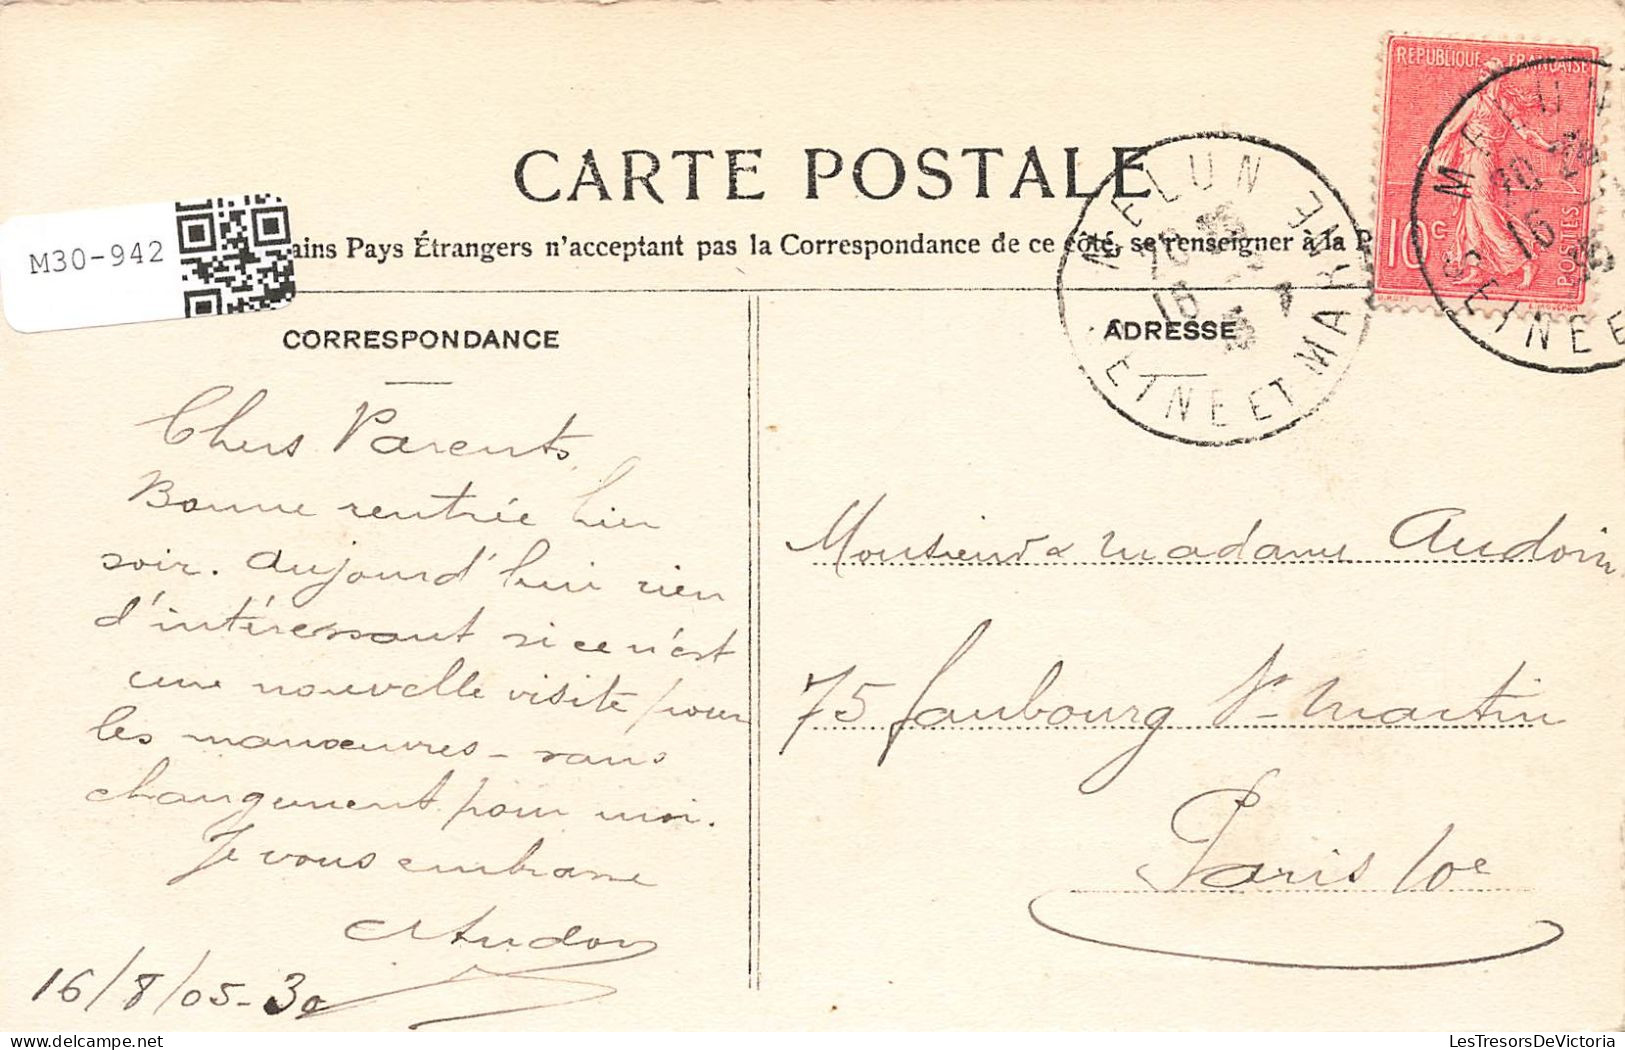 CARTE POSTALE
M30-942
ains Pays Étrangers n'acceptant pas la Correspondance de ce côté, se renseigner à la P
REPUBLIQUE FRANCAISE
10c
POSTES
MELUN
SEINE ET MARNE
MELUN
SEINE E
CORRESPONDANCE
ADRESSE
Chers Parents
Bonne rentrée hier
soir. Aujourd'hui rien
d'intéressant si ce n'est
une nouvelle visite pour
les manœuvres - sans
changement pour moi.
Je vous embrasse
Audoin
16/8/05-30
Monsieur & Madame Audoin
75 faubourg St Martin
Paris 10e
LesTresorsDeVictoria